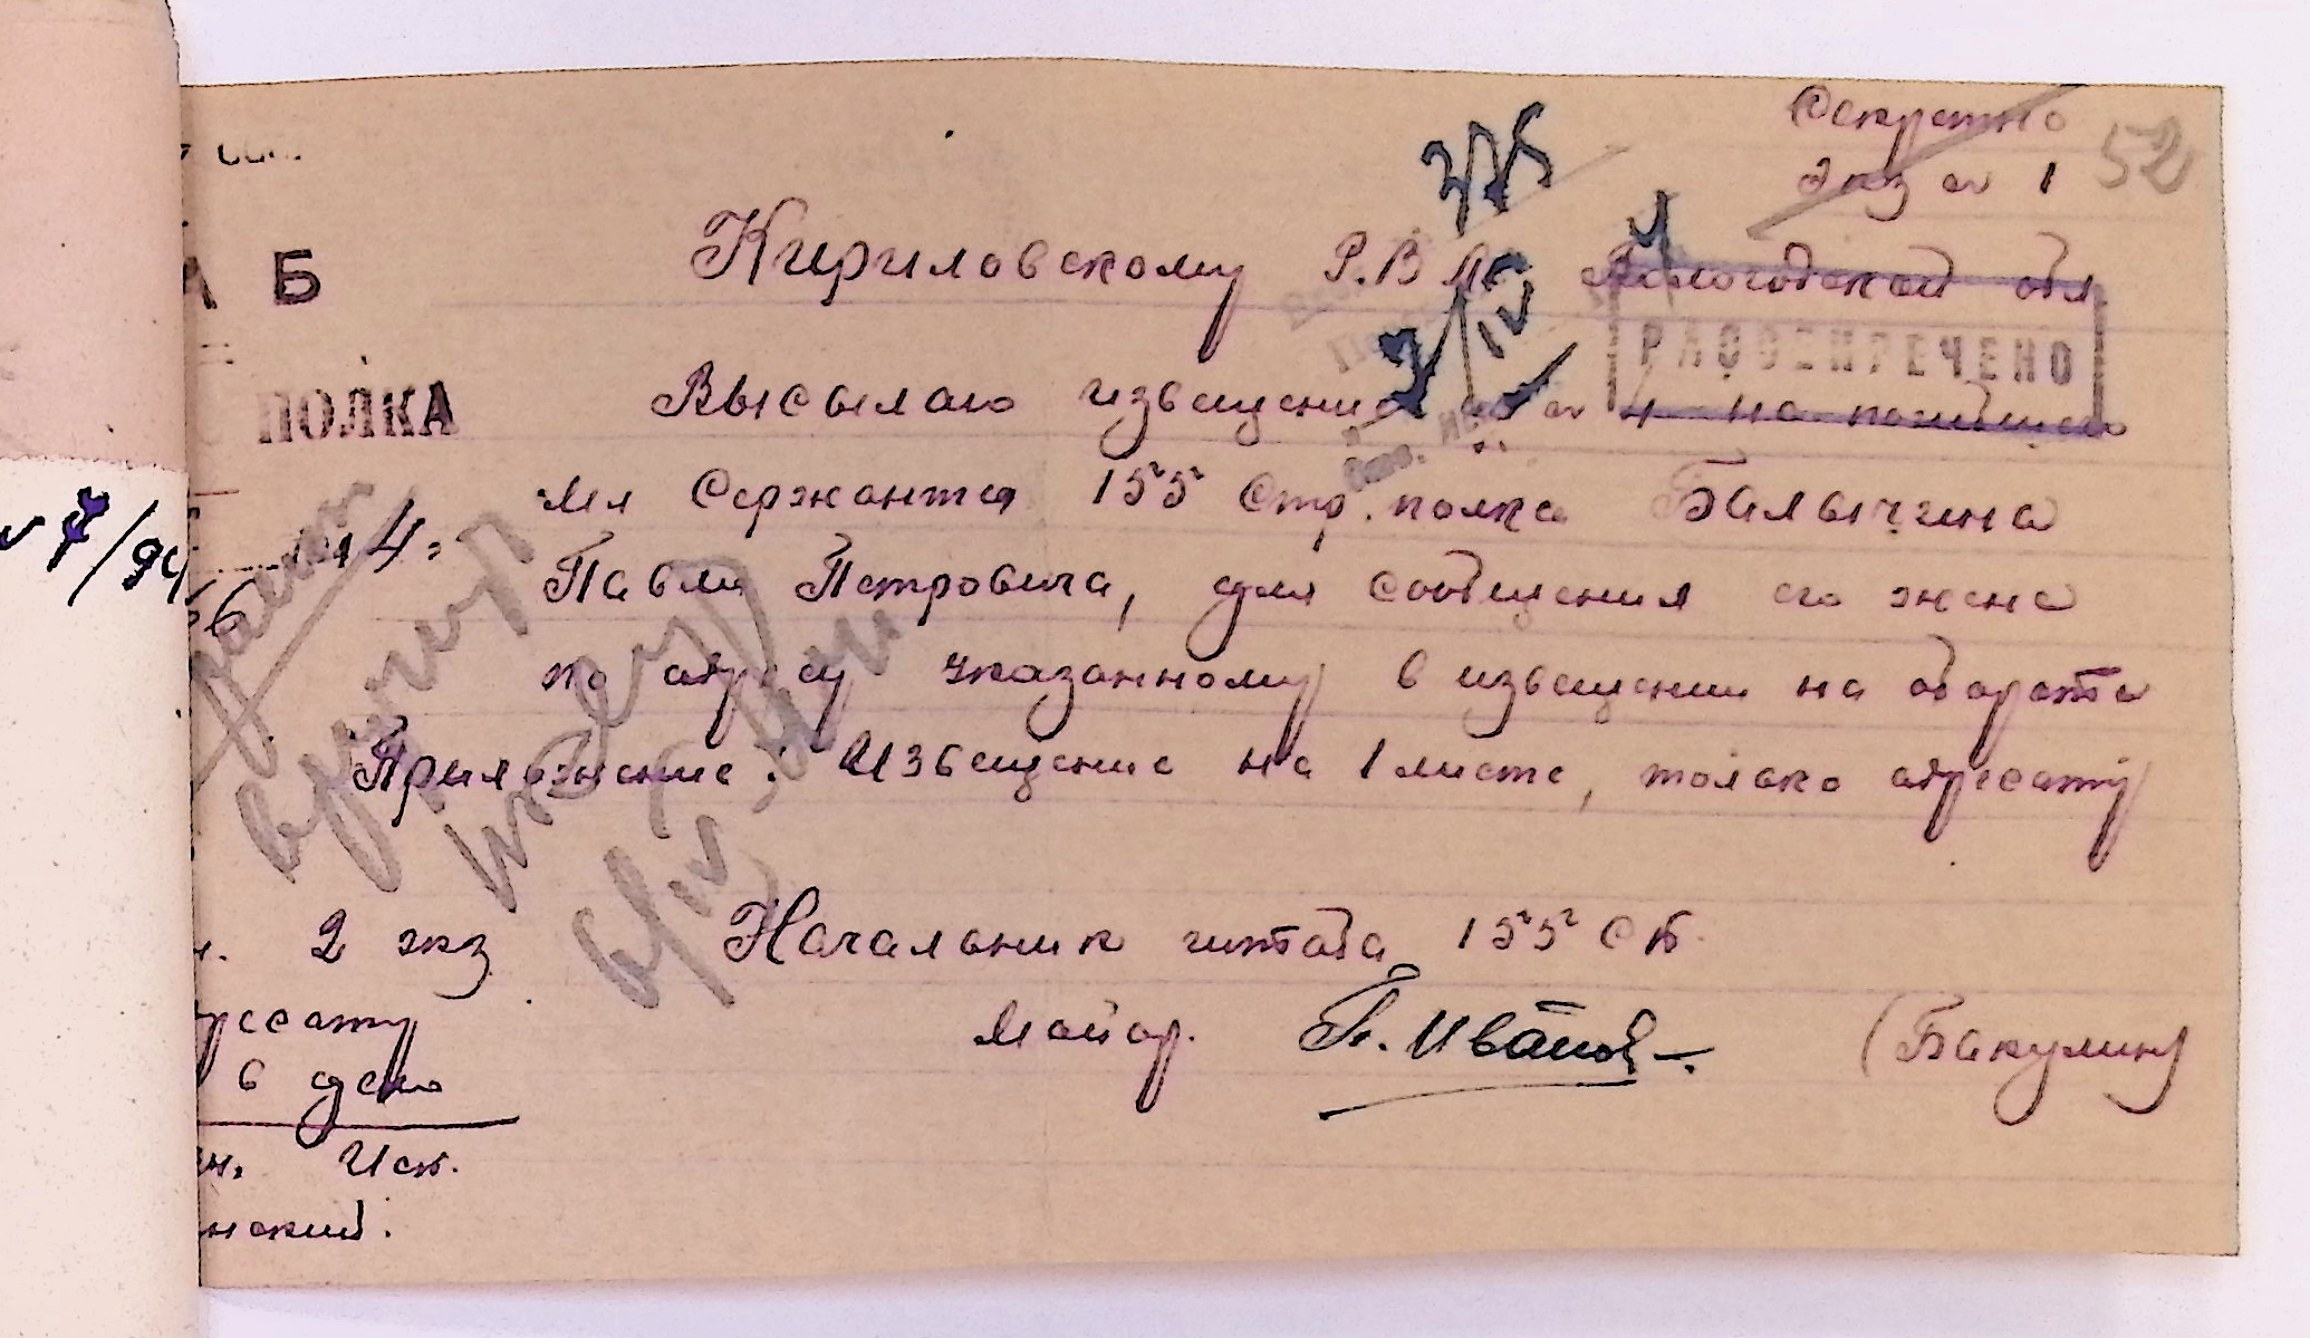 Секретно
Экз № 1
52
Кириловскому Р.В.К. Вологодской обл
РАССЕКРЕЧЕНО
АБ
ПОЛКА
Высылаю извещение за № 4 на погибшего
мл Сержанта 155 Стр. полка Балычина
Павла Петровича, для сообщения его жене
по адресу указанному в извещении на обороте
Приложение: Извещение на 1 листе, только адресату
Начальник штаба 155 СП.
Майор. П. Иванов (Бакулин)
2 экз
ресату
в дело
Исп.
нский.
вручит
6/IV